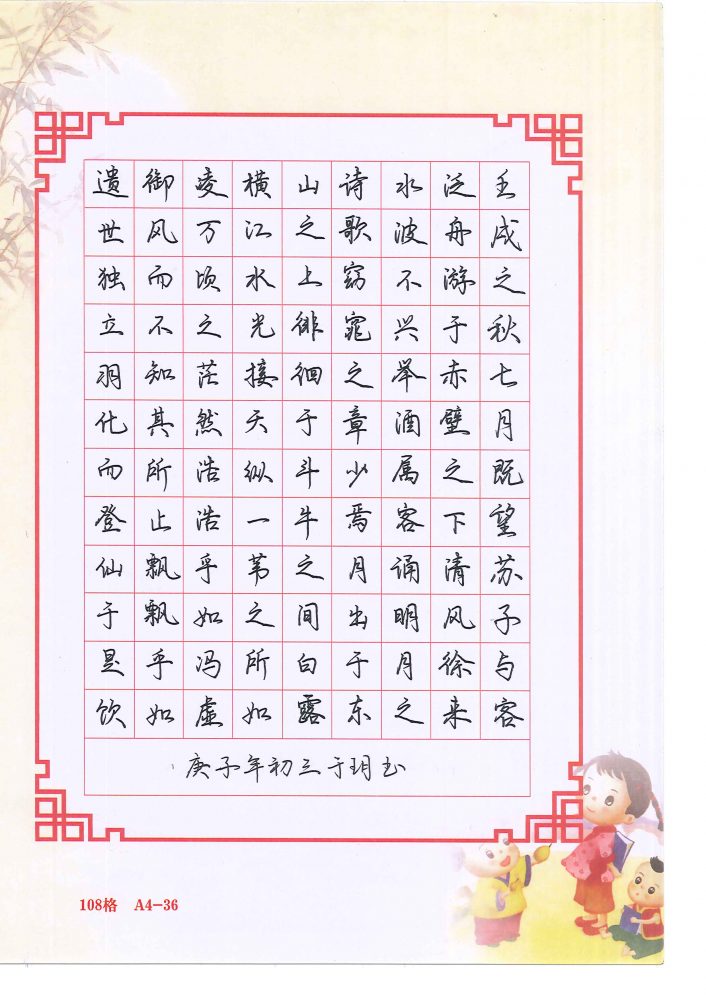 壬戌之秋七月既望苏子与客
泛舟游于赤壁之下清风徐来
水波不兴举酒属客诵明月之
诗歌窈窕之章少焉月出于东
山之上徘徊于斗牛之间白露
横江水光接天纵一苇之所如
凌万顷之茫然浩浩乎如冯虚
御风而不知其所止飘飘乎如
遗世独立羽化而登仙于是饮
庚子年初三于玥玉
108格 A4-36